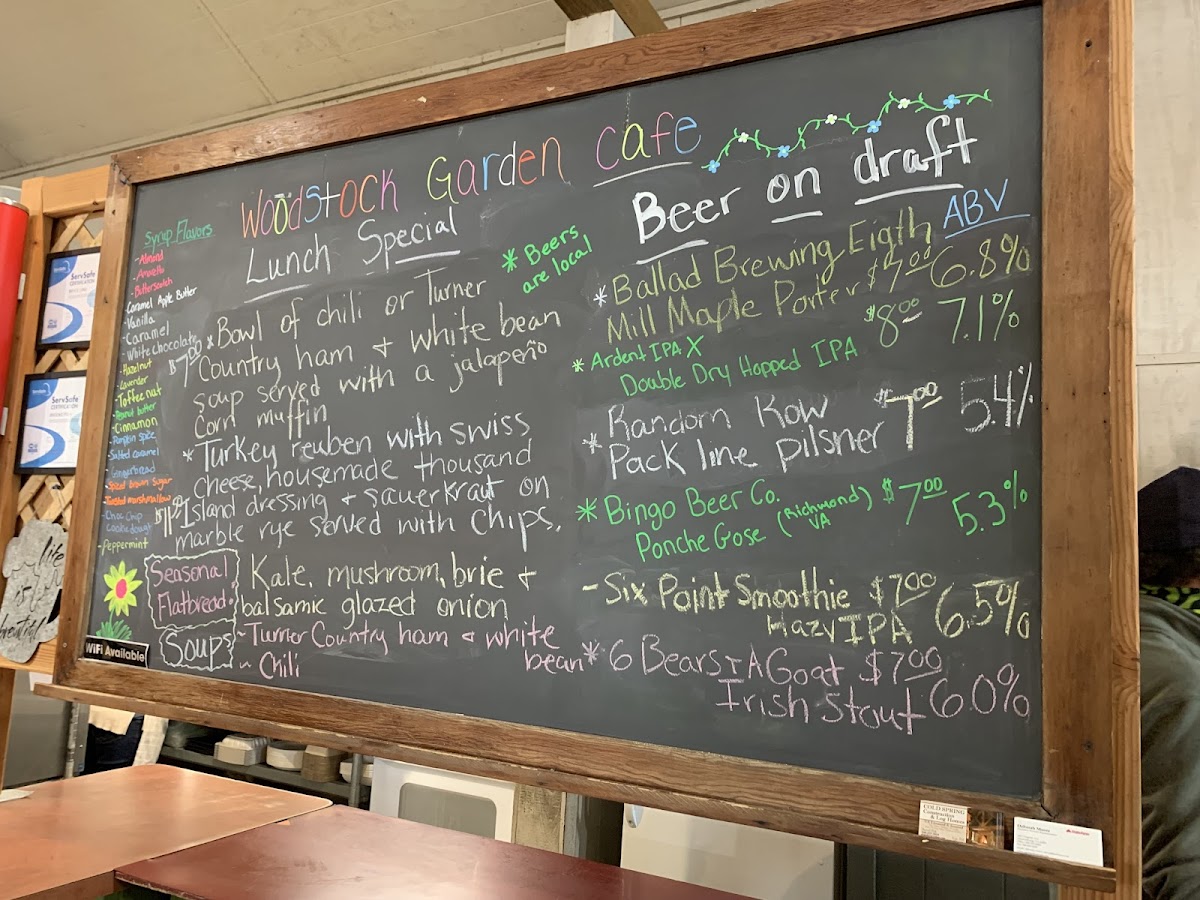 Woodstock Garden Cafe
Syrup Flavors
- Almond
- Amaretto
- Butterscotch
- Caramel Apple Butter
- Vanilla
- Caramel
- White chocolate
- Hazelnut
- Lavender
- Toffee nut
- Peanut butter
- Cinnamon
- Pumpkin spice
- Salted caramel
- Gingerbread
- Spiced brown sugar
- Toasted marshmallow
- Choc Chip
cookie dough
- Peppermint
Lunch Special
$7.00 * Bowl of chili or Turner
Country ham + white bean
soup served with a jalapeño
corn muffin
* Turkey reuben with swiss
cheese, housemade thousand
Island dressing + sauerkraut on
marble rye served with chips.
Seasonal
Flatbread:
Kale, mushroom, brie +
balsamic glazed onion
Soups
~ Turner Country ham + white
bean
~ Chili
WiFi Available
* Beers
are local
Beer on draft
ABV
* Ballad Brewing Eigth
Mill Maple Porter $7.00 6.8%
* Ardent IPA X
Double Dry Hopped IPA $8.00 7.1%
* Random Row
Pack line pilsner $7.00 5.4%
* Bingo Beer Co.
Ponche Gose (Richmond VA) $7.00 5.3%
- Six Point Smoothie $7.00
Hazy IPA 6.5%
* 6 Bears + A Goat $7.00
Irish Stout 6.0%
ServSafe
CERTIFICATION
ServSafe
CERTIFICATION
life
is
beautiful
COLD SPRING
Construction
& Log Homes
Deborah